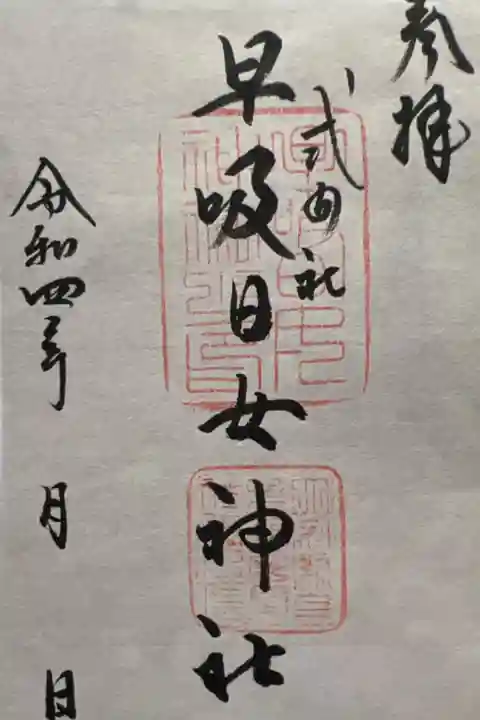 奉拝
式内社
早吸日女神社
令和四年 月 日